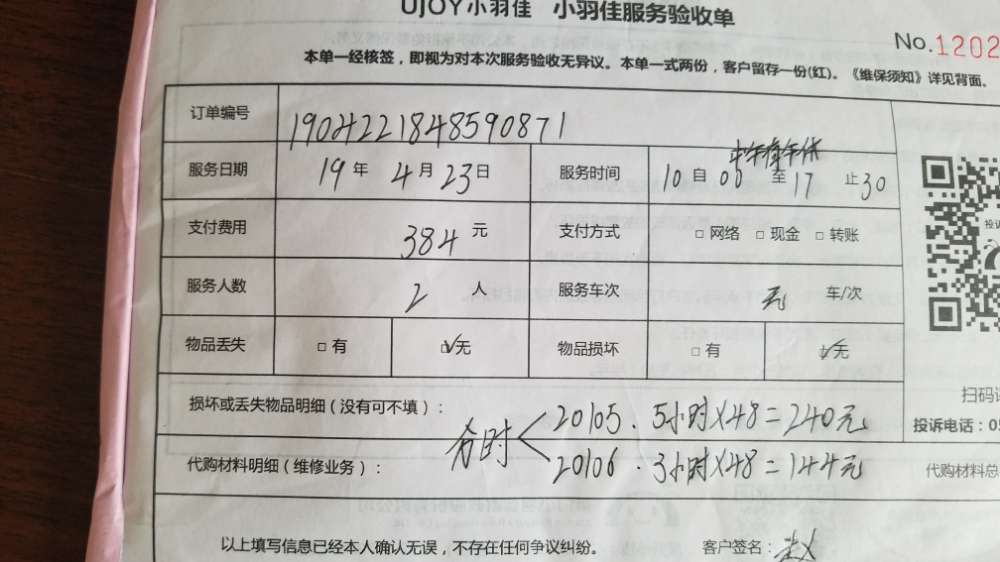 UJOY小羽佳 小羽佳服务验收单
No.1202
本单一经核签，即视为对本次服务验收无异议。本单一式两份，客户留存一份(红)。《维保须知》详见背面。
订单编号 1904221848590871
服务日期 19年4月23日 服务时间 10自00至17止30
支付费用 384元 支付方式 □网络 □现金 □转账
服务人数 2人 服务车次 无 车/次
物品丢失 □有 ☑无 物品损坏 □有 ☑无
损坏或丢失物品明细（没有可不填）：
20105．5小时×48=240元
时
20106．3小时×48=144元
代购材料明细（维修业务）：
代购材料总
扫码
投诉电话：05
以上填写信息已经本人确认无误，不存在任何争议纠纷。 客户签名：赵